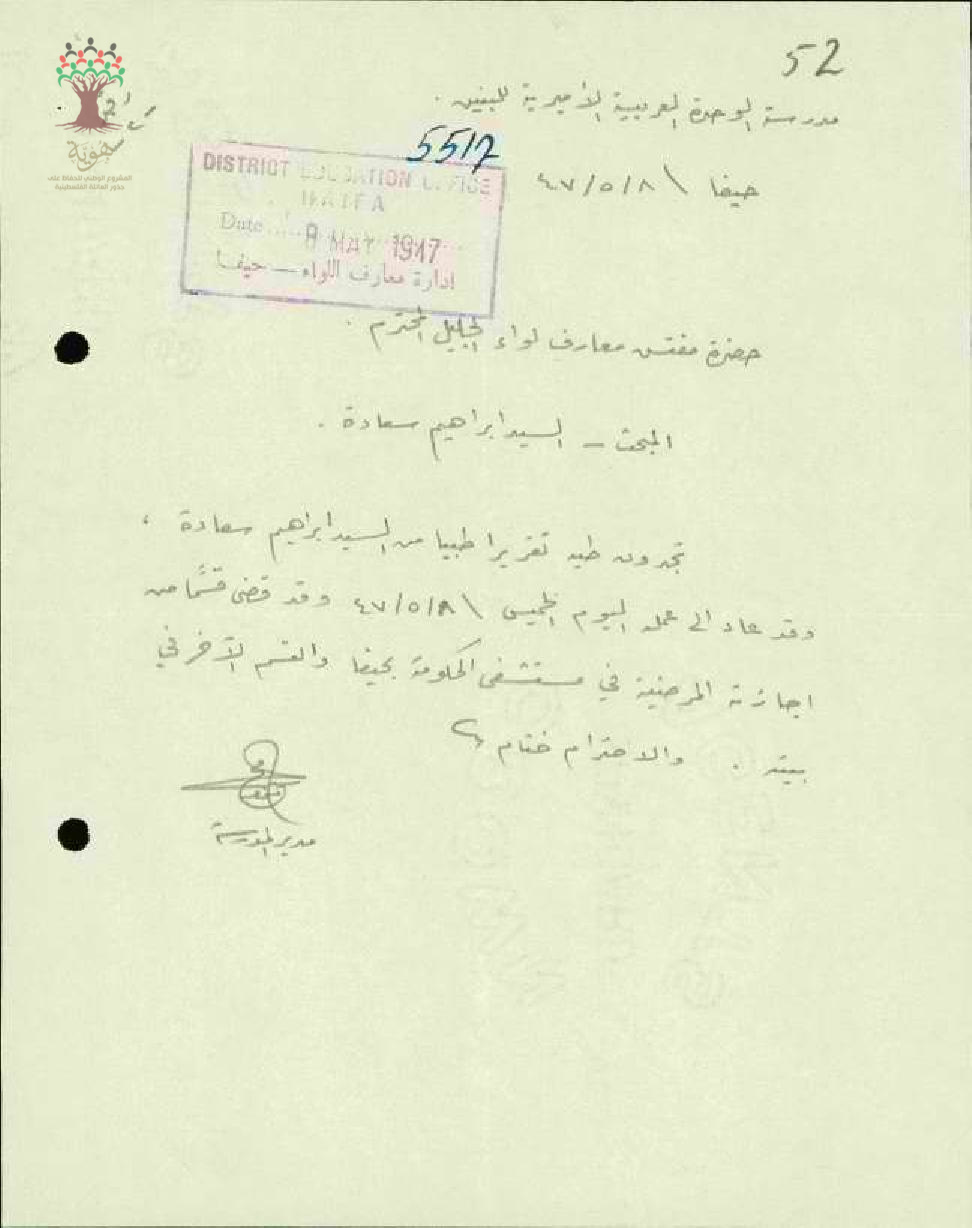 52
مدرسة الوحدة العربية الأميرية للبنين .
5517
حيفا ٤٧/٥/٨
هوية
المشروع الوطني للحفاظ على
جذور العائلة الفلسطينية
DISTRICT EDUCATION OFFICE
HAIFA
Date 8 MAY 1947
ادارة معارف اللواء — حيفا
حضرة مفتش معارف لواء الجليل المحترم .
المبحث – السيد ابراهيم سعادة .
تجدون طيه تقريرا طبيا من السيد ابراهيم سعادة ،
وقد عاد الى عمله اليوم الخميس ٤٧/٥/٨ وقد قضى قسمًا من
اجازته المرضية في مستشفى الحكومة بحيفا والقسم الآخر في
بيته . والاحترام ختام
مدير المدرسة